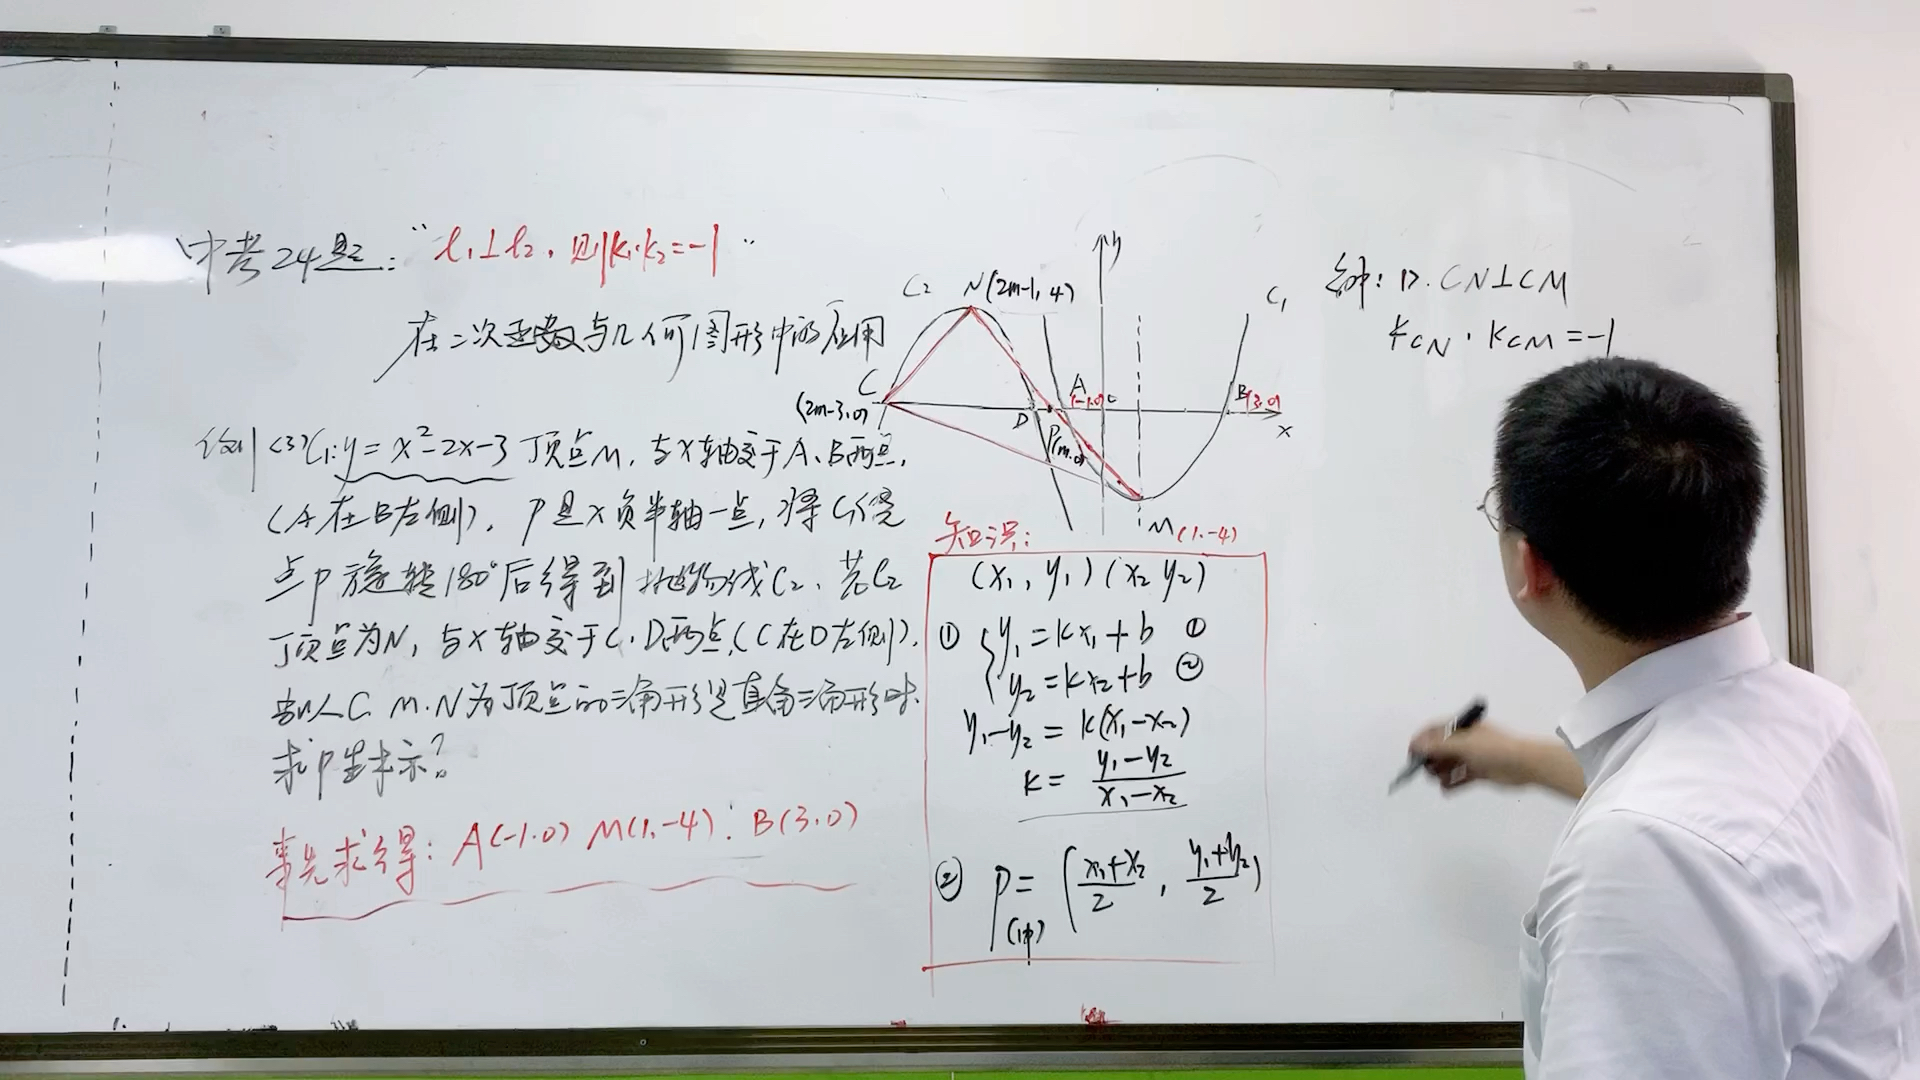 中考24题: "l₁⊥l₂, 则k₁·k₂=-1"
在二次函数与几何图形中的应用
例(3)C₁:y=x²-2x-3 顶点M, 与x轴交于A、B两点,
(A在B左侧), P是x负半轴一点, 将C₁绕
点P旋转180°后得到抛物线C₂, 若C₂
顶点为N, 与x轴交于C.D两点,(C在D左侧),
当以C.M.N为顶点的三角形是直角三角形时.
求P坐标示?
率先求得: A(-1.0) M(1,-4) B(3.0)
y
C₂
N(2m-1, 4)
C₁
C
(2m-3,0)
A
(-1.0)
B(3.0)
D
P(m.0)
x
M(1.-4)
知识:
(x₁, y₁) (x₂ y₂)
① { y₁=kx₁+b ①
y₂=kx₂+b ②
y₁-y₂ = k(x₁-x₂)
k= (y₁-y₂)/(x₁-x₂)
② P= ((x₁+x₂)/2, (y₁+y₂)/2)
(中)
解: 1). CN⊥CM
kCN · kCM =-1